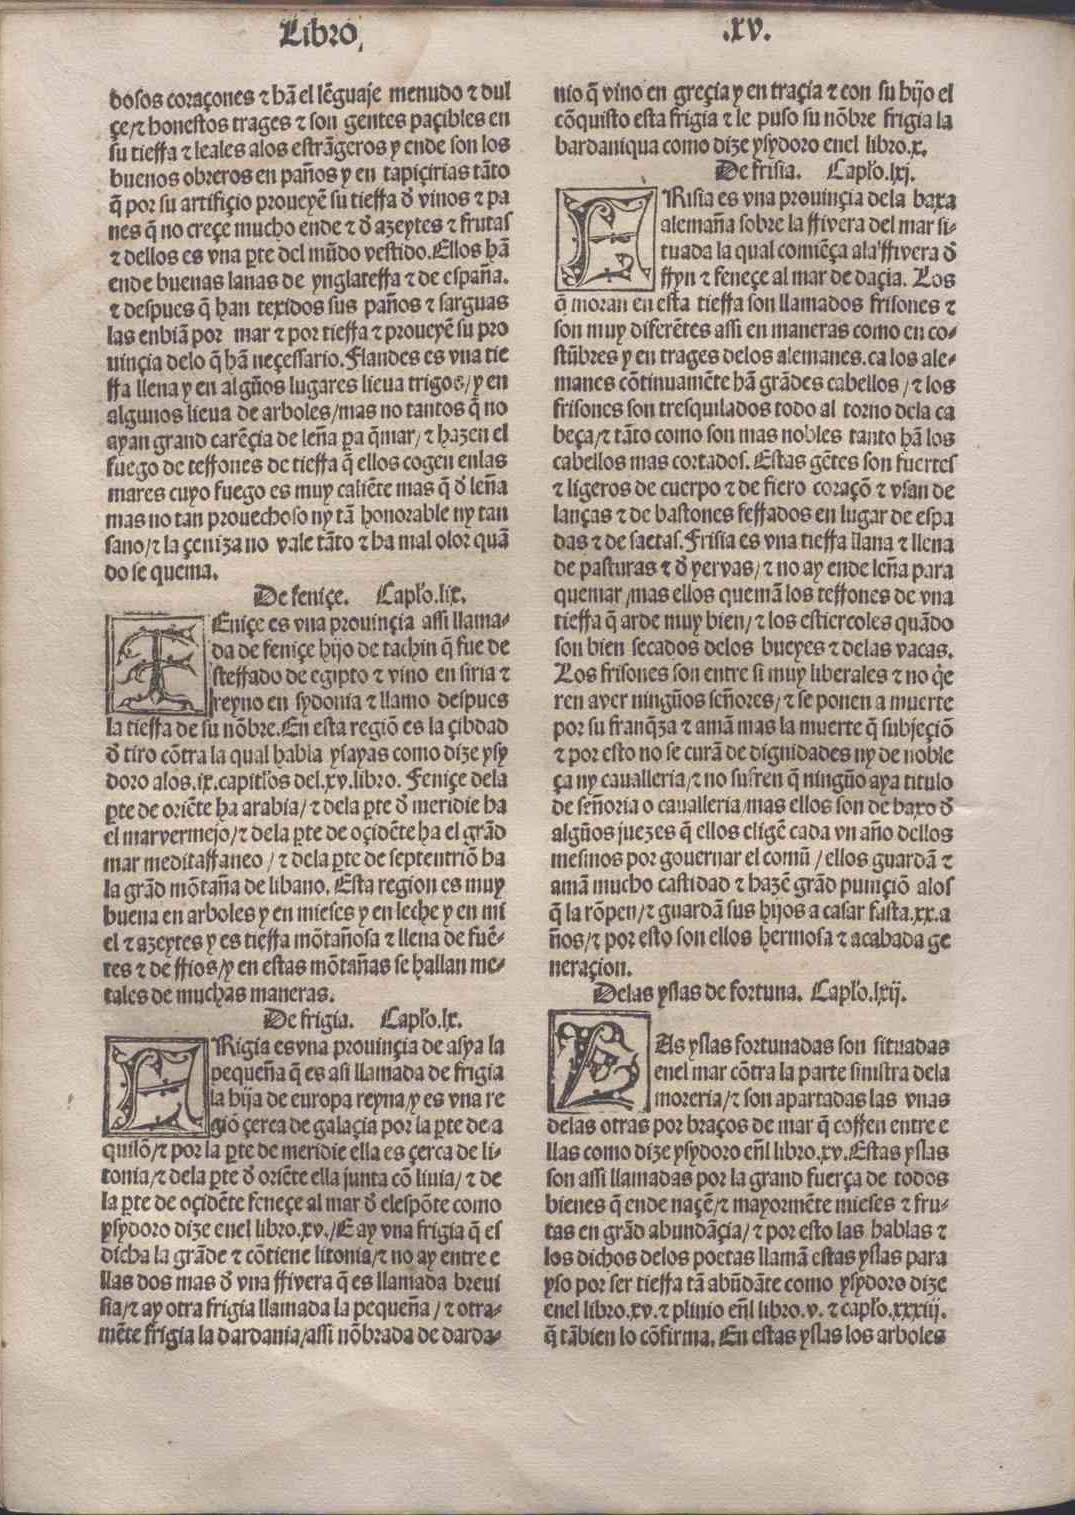 Libro .xv.
dosos coraçones ⁊ hã el lẽguaje menudo ⁊ dul
çe/⁊ honestos trages ⁊ son gentes paçibles en
su tierra ⁊ leales alos estrãgeros y ende son los
buenos obreros en paños y en tapiçirias tãto
q̃ por su artifiçio proueyẽ su tierra d̃ vinos ⁊ pa
nes q̃ no creçe mucho ende ⁊ d̃ azeytes ⁊ frutas
⁊ dellos es vna ꝑte del mũdo vestido.Ellos hã
ende buenas lanas de ynglaterra ⁊ de españa.
⁊ despues q̃ han texidos sus paños ⁊ sarguas
las enbiã por mar ⁊ por tierra ⁊ proueyẽ su pro
uinçia delo q̃ hã neçessario.Flandes es vna tie
rra llena y en algũos lugares lieua trigos/y en
algunos lieua de arboles/mas no tantos q̃ no
ayan grand carẽçia de leña ꝑa q̃mar/⁊ hazen el
fuego de terrones de tierra q̃ ellos cogen enlas
mares cuyo fuego es muy caliẽte mas q̃ d̃ leña
mas no tan prouechoso ny tã honorable ny tan
sano/⁊ la çeniza no vale tãto ⁊ ha mal olor quã
do se quema.
De feniçe. Capło.lix.
FEniçe es vna prouinçia assi llama-
da de feniçe hijo de tachin q̃ fue de
sterrado de egipto ⁊ vino en siria ⁊
reyno en sydonia ⁊ llamo despues
la tierra de su nõbre.En esta regiõ es la çibdad
d̃ tiro cõtra la qual habla ysayas como dize ysy
doro alos.ix.capitłos del.xv.libro. Feniçe dela
ꝑte de oriẽte ha arabia/⁊ dela ꝑte d̃ meridie ha
el marvermejo/⁊ dela ꝑte de oçidẽte ha el grãd
mar meditarraneo /⁊ dela ꝑte de septentriõ ha
la grãd mõtaña de libano. Esta region es muy
buena en arboles y en mieses y en leche y en mi
el ⁊ azeytes y es tierra mõtañosa ⁊ llena de fuẽ-
tes ⁊ de rrios/y en estas mõtañas se hallan me-
tales de muchas maneras.
De frigia. Capło.lx.
FRigia es vna prouinçia de asya la
pequeña q̃ es asi llamada de frigia
la hija de europa reyna/y es vna re
giõ çerca de galaçia por la ꝑte de a
quilõ/⁊ por la ꝑte de meridie ella es çerca de li-
tonia/⁊ dela ꝑte d̃ oriẽte ella junta cõ liuia/⁊ de
la ꝑte de oçidẽte feneçe al mar d̃ elespõte como
ysydoro dize enel libro.xv./E ay vna frigia q̃ es
dicha la grãde ⁊ cõtiene litonia/⁊ no ay entre e
llas dos mas d̃ vna rrivera q̃ es llamada breui
sia/⁊ ay otra frigia llamada la pequeña/⁊ otra-
mẽte frigia la dardania/assi nõbrada de darda-
nio q̃ vino en greçia y en traçia ⁊ con su hijo el
cõquisto esta frigia ⁊ le puso su nõbre frigia la
bardaniqua como dize ysydoro enel libro.x.
De frisia. Capło.lxj.
FRisia es vna prouinçia dela baxa
alemaña sobre la rrivera del mar si-
tuada la qual comiẽça ala rrivera d̃
rryn ⁊ feneçe al mar de daçia. Los
q̃ moran en esta tierra son llamados frisones ⁊
son muy diferẽtes assi en maneras como en co-
stũbres y en trages delos alemanes.ca los ale-
manes cõtinuamẽte hã grãdes cabellos/⁊ los
frisones son tresquilados todo al torno dela ca
beça/⁊ tãto como son mas nobles tanto hã los
cabellos mas cortados. Estas gẽtes son fuertes
⁊ ligeros de cuerpo ⁊ de fiero coraçõ ⁊ vsan de
lanças ⁊ de bastones ferrados en lugar de espa
das ⁊ de saetas.Frisia es vna tierra llana ⁊ llena
de pasturas ⁊ d̃ yervas/⁊ no ay ende leña para
quemar/mas ellos quemã los terrones de vna
tierra q̃ arde muy bien/⁊ los estiercoles quãdo
son bien secados delos bueyes ⁊ delas vacas.
Los frisones son entre si muy liberales ⁊ no q̃e
ren aver ningũos señores/⁊ se ponen a muerte
por su franq̃za ⁊ amã mas la muerte q̃ subjeçiõ
⁊ por esto no se curã de dignidades ny de noble
ça ny cavalleria/⁊ no sufren q̃ ningũo aya titulo
de señoria o caualleria/mas ellos son de baxo d̃
algũos juezes q̃ ellos eligẽ cada vn año dellos
mesmos por gouernar el comũ/ellos guardã ⁊
amã mucho castidad ⁊ hazẽ grãd puniçiõ alos
q̃ la rõpen/⁊ guardã sus hijos a casar fasta.xx.a
ños/⁊ por esto son ellos hermosa ⁊ acabada ge
neraçion.
Delas yslas de fortuna. Capło.lxij.
LAs yslas fortunadas son situadas
enel mar cõtra la parte sinistra dela
moreria/⁊ son apartadas las vnas
delas otras por braços de mar q̃ corren entre e
llas como dize ysydoro eñl libro.xv.Estas yslas
son assi llamadas por la grand fuerça de todos
bienes q̃ ende naçẽ/⁊ mayormẽte mieses ⁊ fru-
tas en grãd abundãçia/⁊ por esto las hablas ⁊
los dichos delos poetas llamã estas yslas para
yso por ser tierra tã abũdãte como ysydoro dize
enel libro.xv.⁊ plinio eñl libro.v. ⁊ capło.xxxiij.
q̃ tãbien lo cõfirma. En estas yslas los arboles